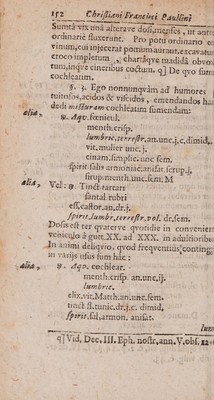 152 Christiani Francisci Paullini
Sumtâ vix unâ alterave dosi, menses, ut antea
ordinariè fluxerunt. Pro poni ordinario co
vinum, cui injecerat pomum aurant. excavatum
croco impletum, chartâque madidâ obvol
tum, inque cineribus coctum. q] De quo sum
cochleatim.
§. 3. Ego nonnunquam ad humores
tartuosos, acidos & viscidos, emendandos ha
dedi misturam cochleatim sumendam:
alia, ℞. Aqv. fœnicul.
menth. crisp.
lumbric. terrestr. an. unc. j. c. dimid.
vit. mulier unc. j.
cinam. simplic. unc. sem.
spirit. salis armoniac. anisat. scrup. j.
sirup. menth. unc. sem. M
alia, Vel: ℞ Tinct. tartari
santal. rubri
ess. castor. an. dr. j.
spirit. lumbr. terrestr. vol. dr. sem.
Dosis est ter quaterve quotidie in convenient
vehiculo à gutt. XX. ad XXX. in adustioribus
In animi deliqvio, qvod freqventius contingit
in varijs usus sum hâc:
alia, ℞. Aqv. cochlear.
menth. crisp. an. unc. ij.
lumbric.
elix. vit. Matth. an. unc. sem.
tinct. fl. tunic. dr. j. c. dimid.
spirit. sal. armon. anisat.
lum
q] Vid. Dec. III. Eph. nostr. ann. V. obs. 12